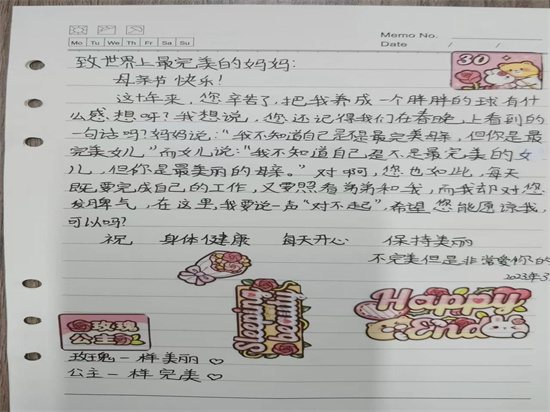 Memo No.
Mo Tu We Th Fr Sa Su
Date / /
致世界上最完美的妈妈:
30
母亲节快乐!
这十年来,您辛苦了,把我养成一个胖胖的球有什
么感想呀?我想说,您还记得我们在春晚上看到的
一句诗吗?妈妈说:“我不知道自己是不是最完美母亲,但你是最
完美女儿”而女儿说:“我不知道自己是不是最完美的女
儿,但你是最美丽的母亲。”对啊,您也如此,每天
既要完成自己的工作,又要照看弟弟和我,而我却对您
发脾气,在这里,我要说一声“对不起”,希望您能原谅我,
可以吗?
祝 身体健康 每天开心 保持美丽
不完美但是非常爱你的
2023年5
玫瑰
公主
Sleeping beauty
Happy End
玫瑰一样美丽♡
公主一样完美♡